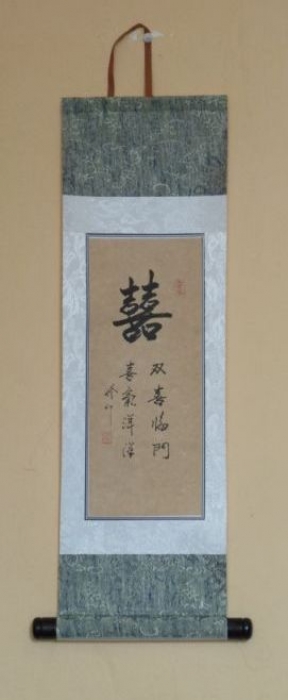 囍
双喜临門
喜氣洋洋